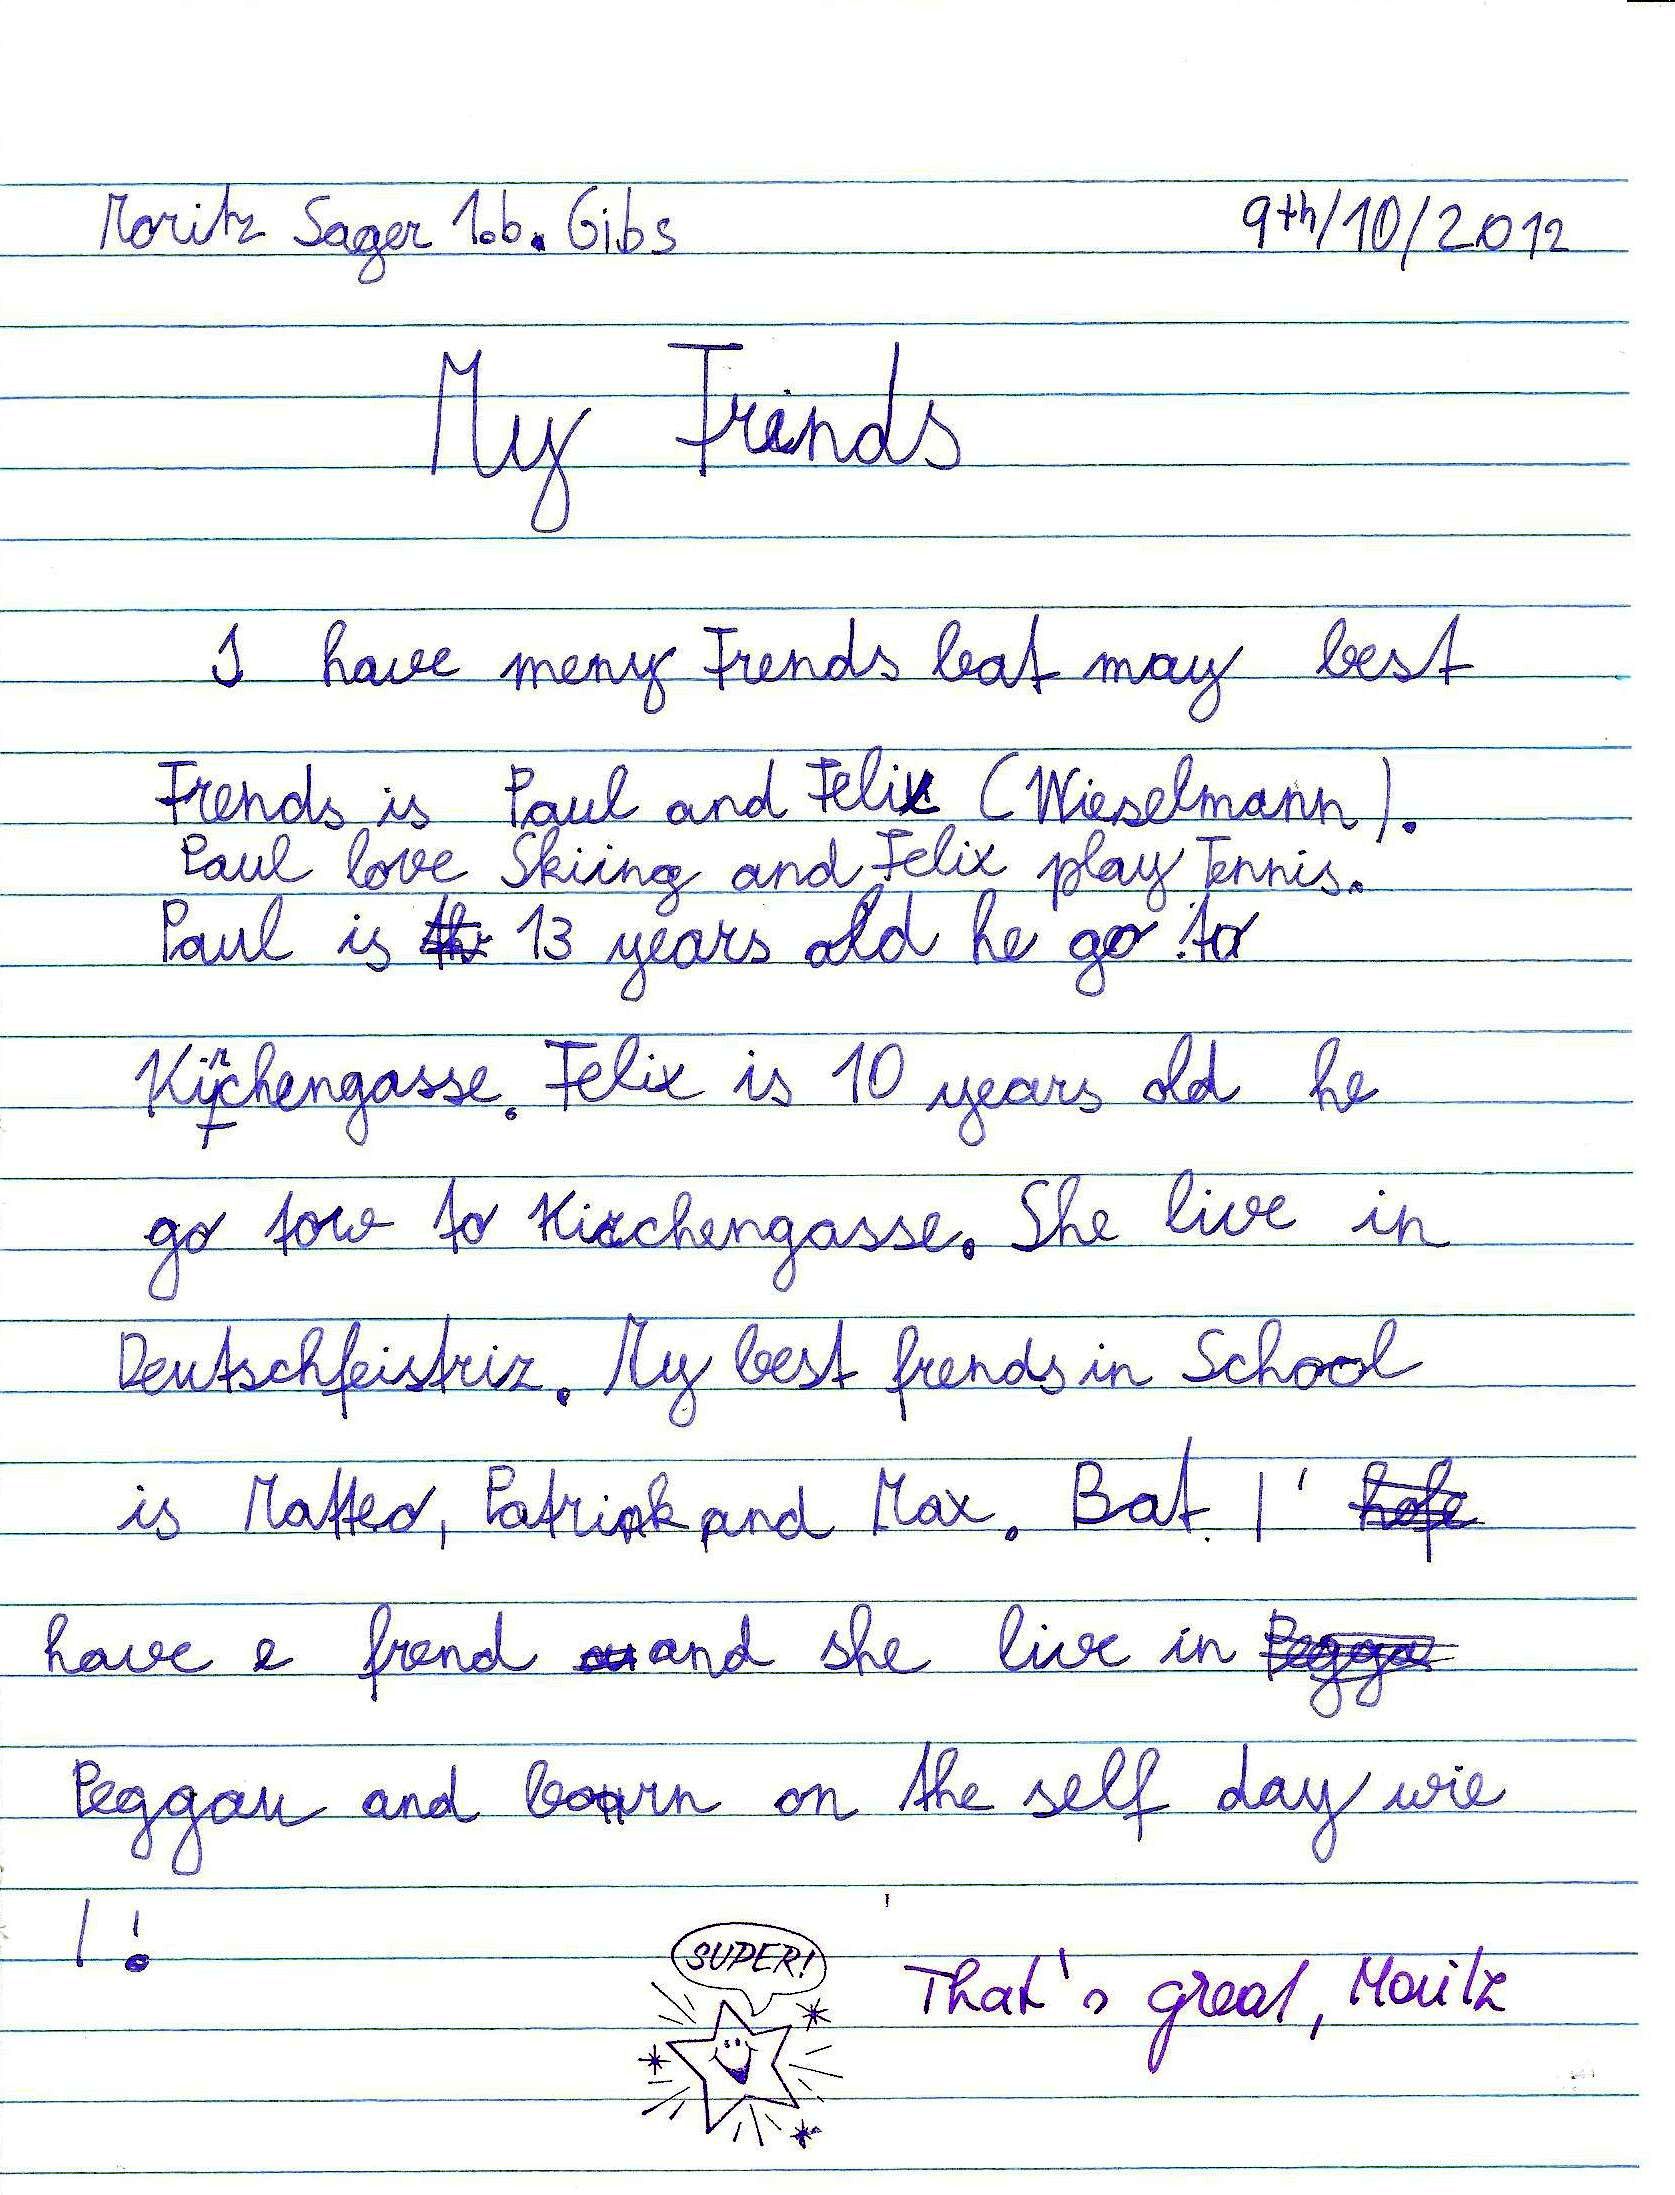 Moritz Sager 1.b. Gibs 9th/10/2012
My Frinds
I have meny Frends bat may best
Frends is Paul and Felix (Wieselmann).
Paul love Skiing and Felix play Tennis.
Paul is 13 years old he go to
Kirchengasse. Felix is 10 years old he
go tow to Kirchengasse. She live in
Deutschfeistriz. My best frends in School
is Matteo, Patrick and Max. Bat I
have e frend and she live in
Peggau and bourn on the self day wie
I!
SUPER!
That's great, Moritz